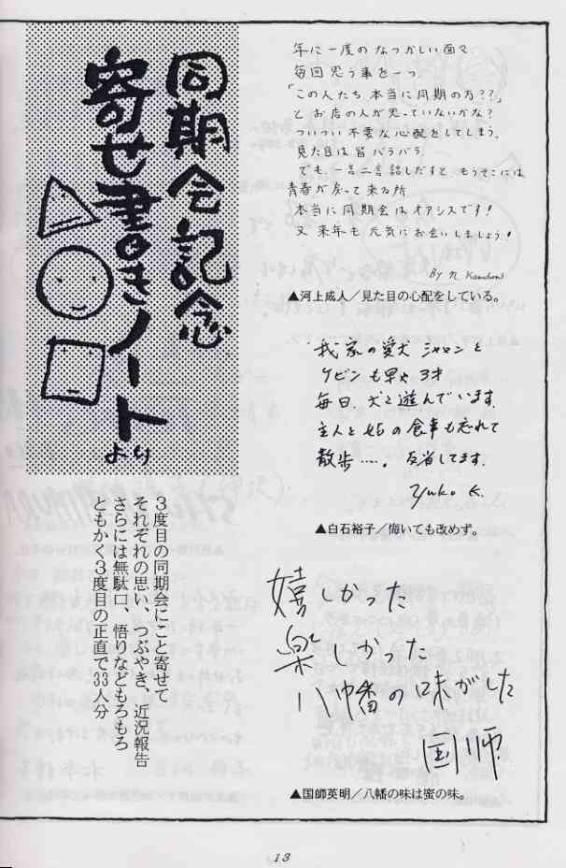 同期会記念
寄せ書きノート
より
3度目の同期会にこと寄せて
それぞれの思い、つぶやき、近況報告
さらには無駄口、悟りなどもろもろ
ともかく3度目の正直で33人分
年に一度のなつかしい面々
毎回思う事を一つ
「この人たち本当に同期の方??」
とお店の人が思っていないかな?
ついつい不要な心配をしてしまう。
見た目は皆バラバラ.
でも、一言二言話しだすと もうそこには
青春が戻って来る所
本当に同期会はオアシスです!
又来年も元気にお会いしましょう!
By N
▲河上成人/見た目の心配をしている。
我家の愛犬 シャロンと
ケビンも早や3才
毎日、犬と遊んでいます
主人との食事も忘れて
散歩…. 反省してます.
Yuko K.
▲白石裕子/悔いても改めず。
嬉しかった
楽しかった
八幡の味がした
国師
▲国師英明/八幡の味は蜜の味。
13